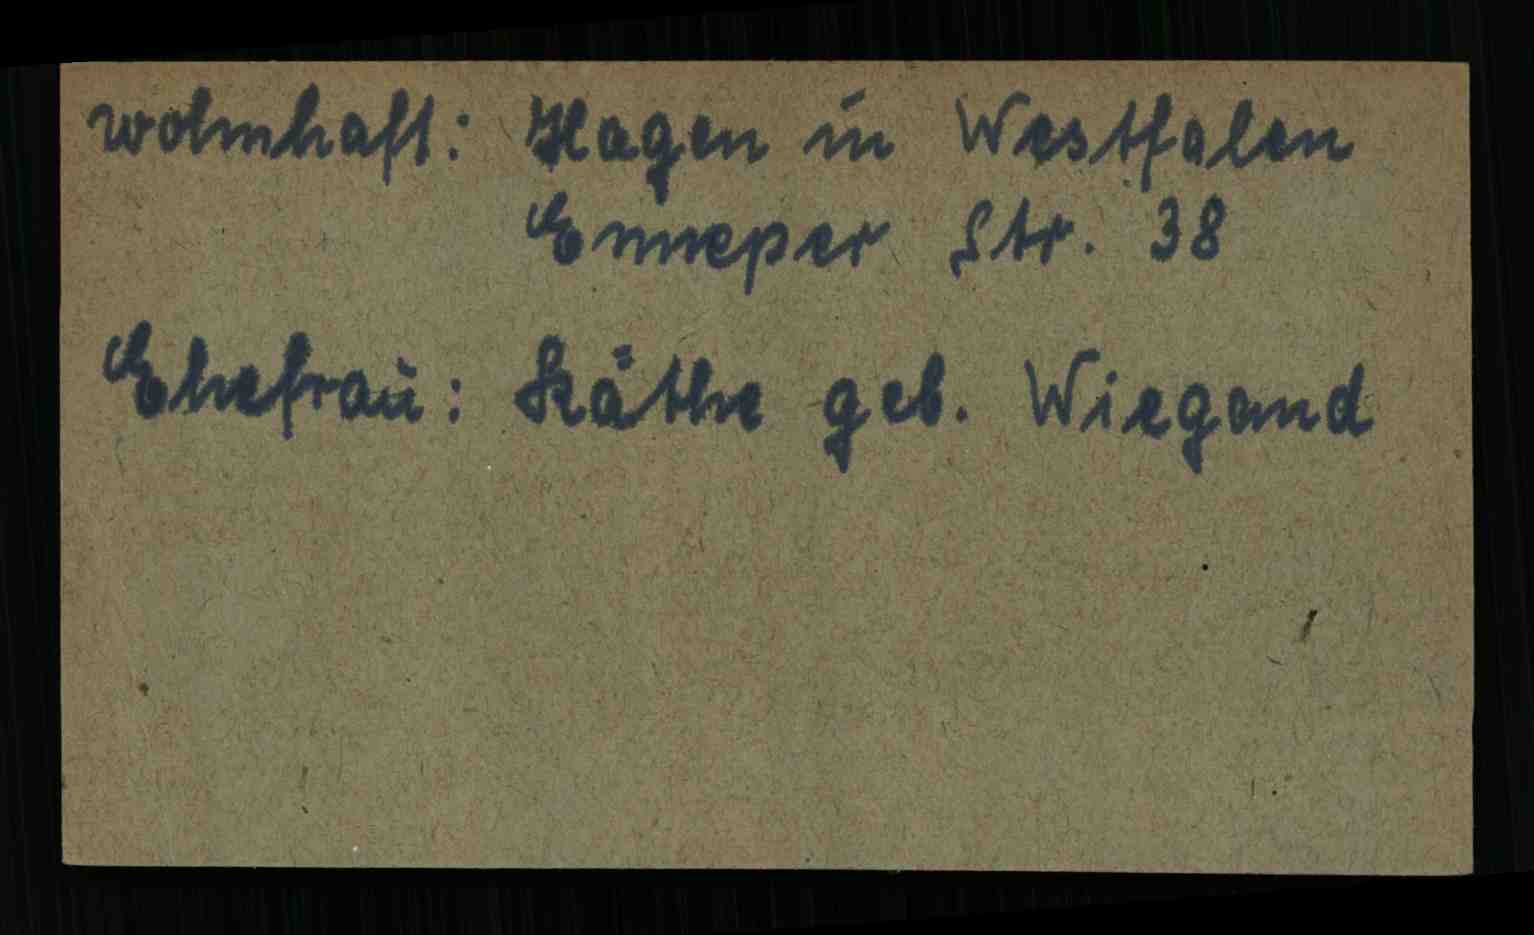 wohnhaft: Hagen in Westfalen
Enneper Str. 38
Ehefrau: Käthe geb. Wiegand